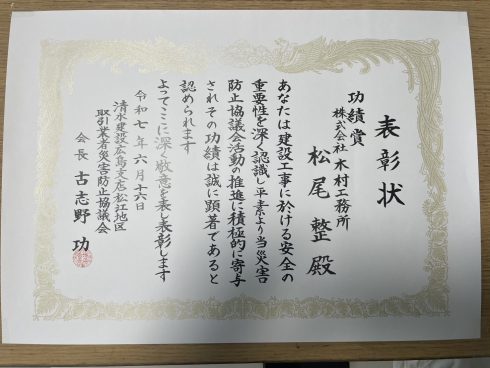 表彰状
功績賞
株式会社 木村工務所
松尾 整 殿
あなたは建設工事に於ける安全の
重要性を深く認識し平素より当災害
防止協議会活動の推進に積極的に寄与
されその功績は誠に顕著であると
認められます
よってここに深く敬意を表し表彰します
令和七年六月十六日
清水建設広島支店松江地区
取引業者災害防止協議会
会長 古志野 功